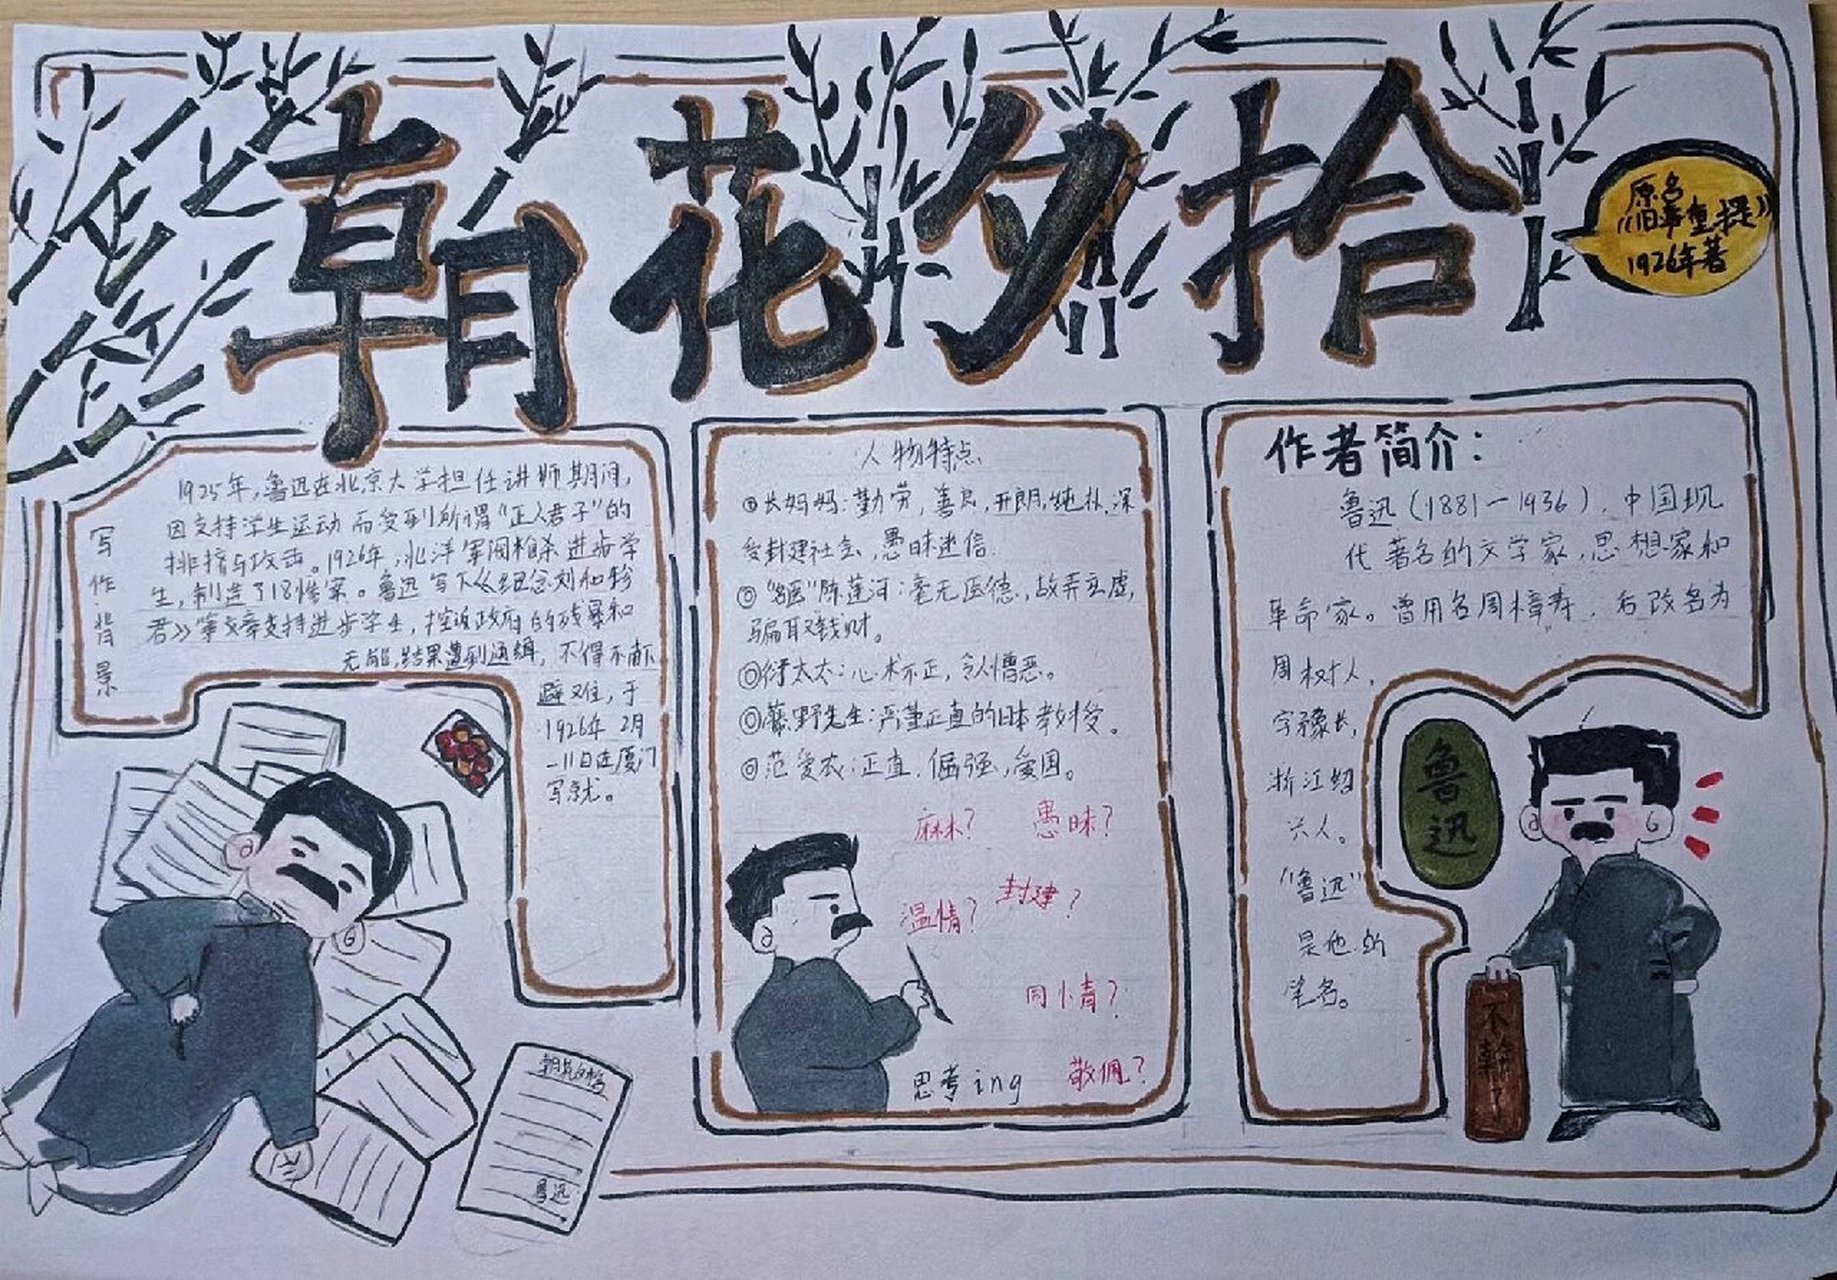 朝花夕拾
原名
《旧事重提》
1926年著
写作背景
1925年,鲁迅在北京大学担任讲师期间,
因支持学生运动而受到所谓“正人君子”的
排挤与攻击。1926年,北洋军阀枪杀进步学
生,制造了18惨案。鲁迅写下《纪念刘和珍
君》等文章支持进步学生,控诉政府的残暴和
无能,结果遭到通缉,不得不南下
避难,于
1926年2月
-11日在厦门
写就。
朝花夕拾
鲁迅
人物特点
◎长妈妈:勤劳,善良,开朗,纯朴,深
受封建社会,愚昧迷信.
◎“名医”陈莲河:毫无医德,故弄玄虚,
骗取钱财。
◎衍太太:心术不正,令人憎恶。
◎藤野先生:严谨正直的日本教授。
◎范爱农:正直,倔强,爱国。
麻木?
愚昧?
温情?
封建?
同情?
敬佩?
思考ing
作者简介:
鲁迅(1881-1936),中国现
代著名的文学家,思想家和
革命家。曾用名周樟寿,后改名为
周树人,
字豫长,
浙江绍
兴人。
“鲁迅”
是他的
笔名。
鲁迅
不干了